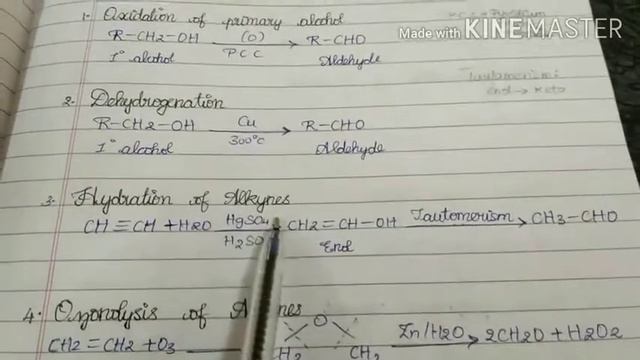 Made with KINEMASTER
1. Oxidation of primary alcohol
R-CH2-OH (O) PCC → R-CHO
1° alcohol Aldehyde
Tautomerism:
Enol → Keto
2. Dehydrogenation
R-CH2-OH Cu 300°C → R-CHO
1° alcohol Aldehyde
3. Hydration of Alkynes
CH≡CH + H2O HgSO4 H2SO CH2=CH-OH Tautomerism → CH3-CHO
Enol
4. Ozonolysis of
CH2=CH2 + O3 O CH2 Zn/H2O → 2CH2O + H2O2